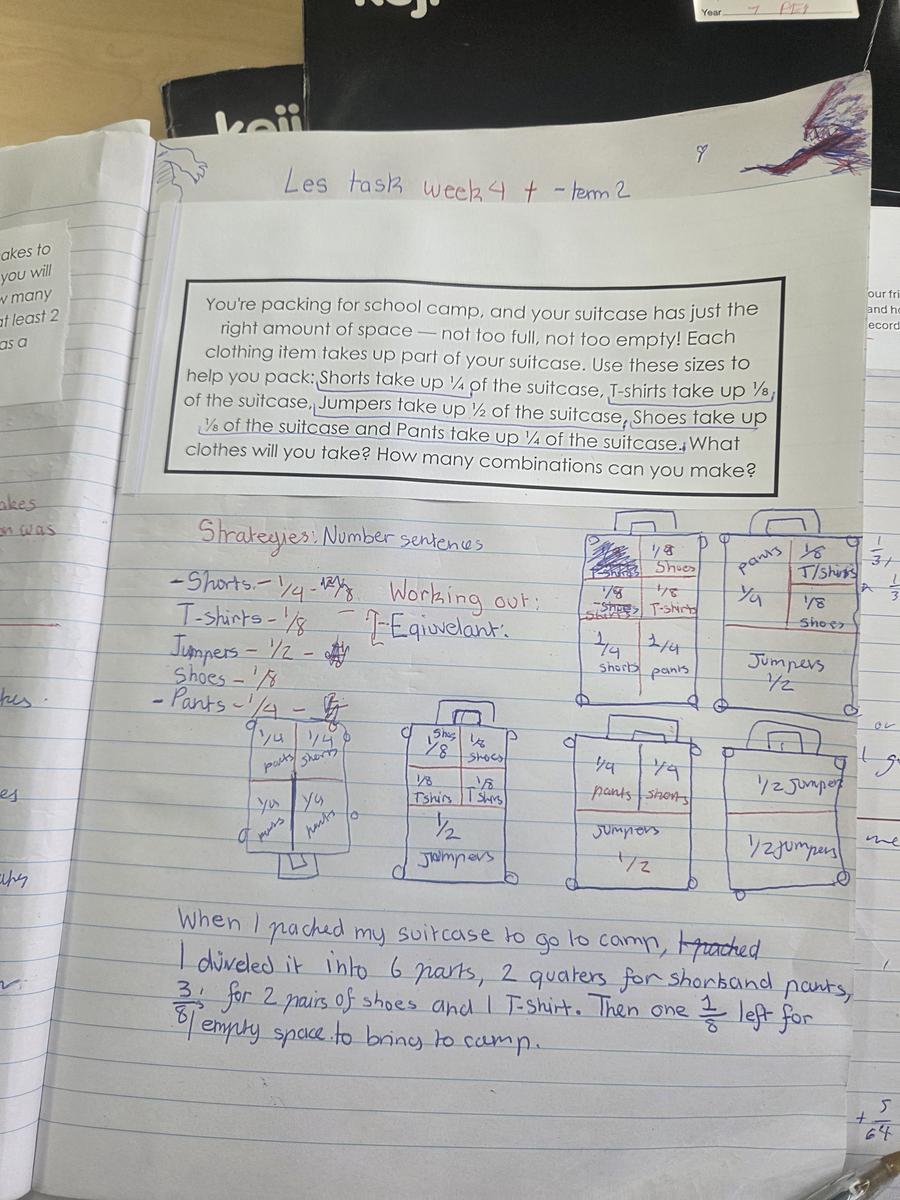 keji
Year 7
keji
Les task week 4 + - term 2
akes to
you will
w many
at least 2
as a
You're packing for school camp, and your suitcase has just the
right amount of space — not too full, not too empty! Each
clothing item takes up part of your suitcase. Use these sizes to
help you pack: Shorts take up ¼ of the suitcase, T-shirts take up ⅛
of the suitcase, Jumpers take up ½ of the suitcase, Shoes take up
⅛ of the suitcase and Pants take up ¼ of the suitcase. What
clothes will you take? How many combinations can you make?
our fri
and ho
ecord
akes
on was
Strategies: Number sentences
- Shorts - 1/4 -
T-shirts - 1/8
Jumpers - 1/2 -
Shoes - 1/8
- Pants - 1/4 -
Working out:
Eqiuvelant:
1/8
Shoes
1/8
shoes
1/8
T-shirts
1/4
shorts
1/4
pants
pants
1/4
1/8
T/shirts
1/8
shoes
Jumpers
1/2
1/4
pants
1/4
shorts
1/4
1/4
pants
Shoes
1/8
1/8
shoes
1/8
Tshirs
1/8
Tshirs
1/2
Jumpers
1/4
pants
1/4
shorts
Jumpers
1/2
1/2 Jumper
1/2 Jumpers
When I pached my suitcase to go to camp, I pached
I diveled it into 6 parts, 2 quaters for shorts and pants,
3/8, for 2 pairs of shoes and 1 T-shirt. Then one 1/8 left for
empty space to bring to camp.
or
me
+ 5/64